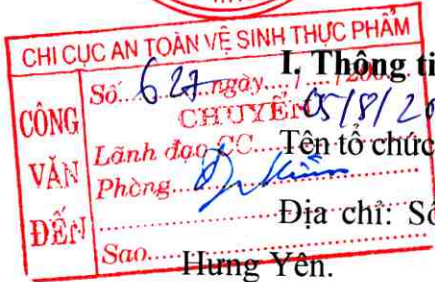 CHI CỤC AN TOÀN VỆ SINH THỰC PHẨM
CÔNG VĂN ĐẾN
Số 627 ngày / / 200
CHUYỂN 05/8/20
Lãnh đạo CC
Phòng
Sao
I. Thông ti
Tên tổ chức
Địa chỉ: Số
Hưng Yên.